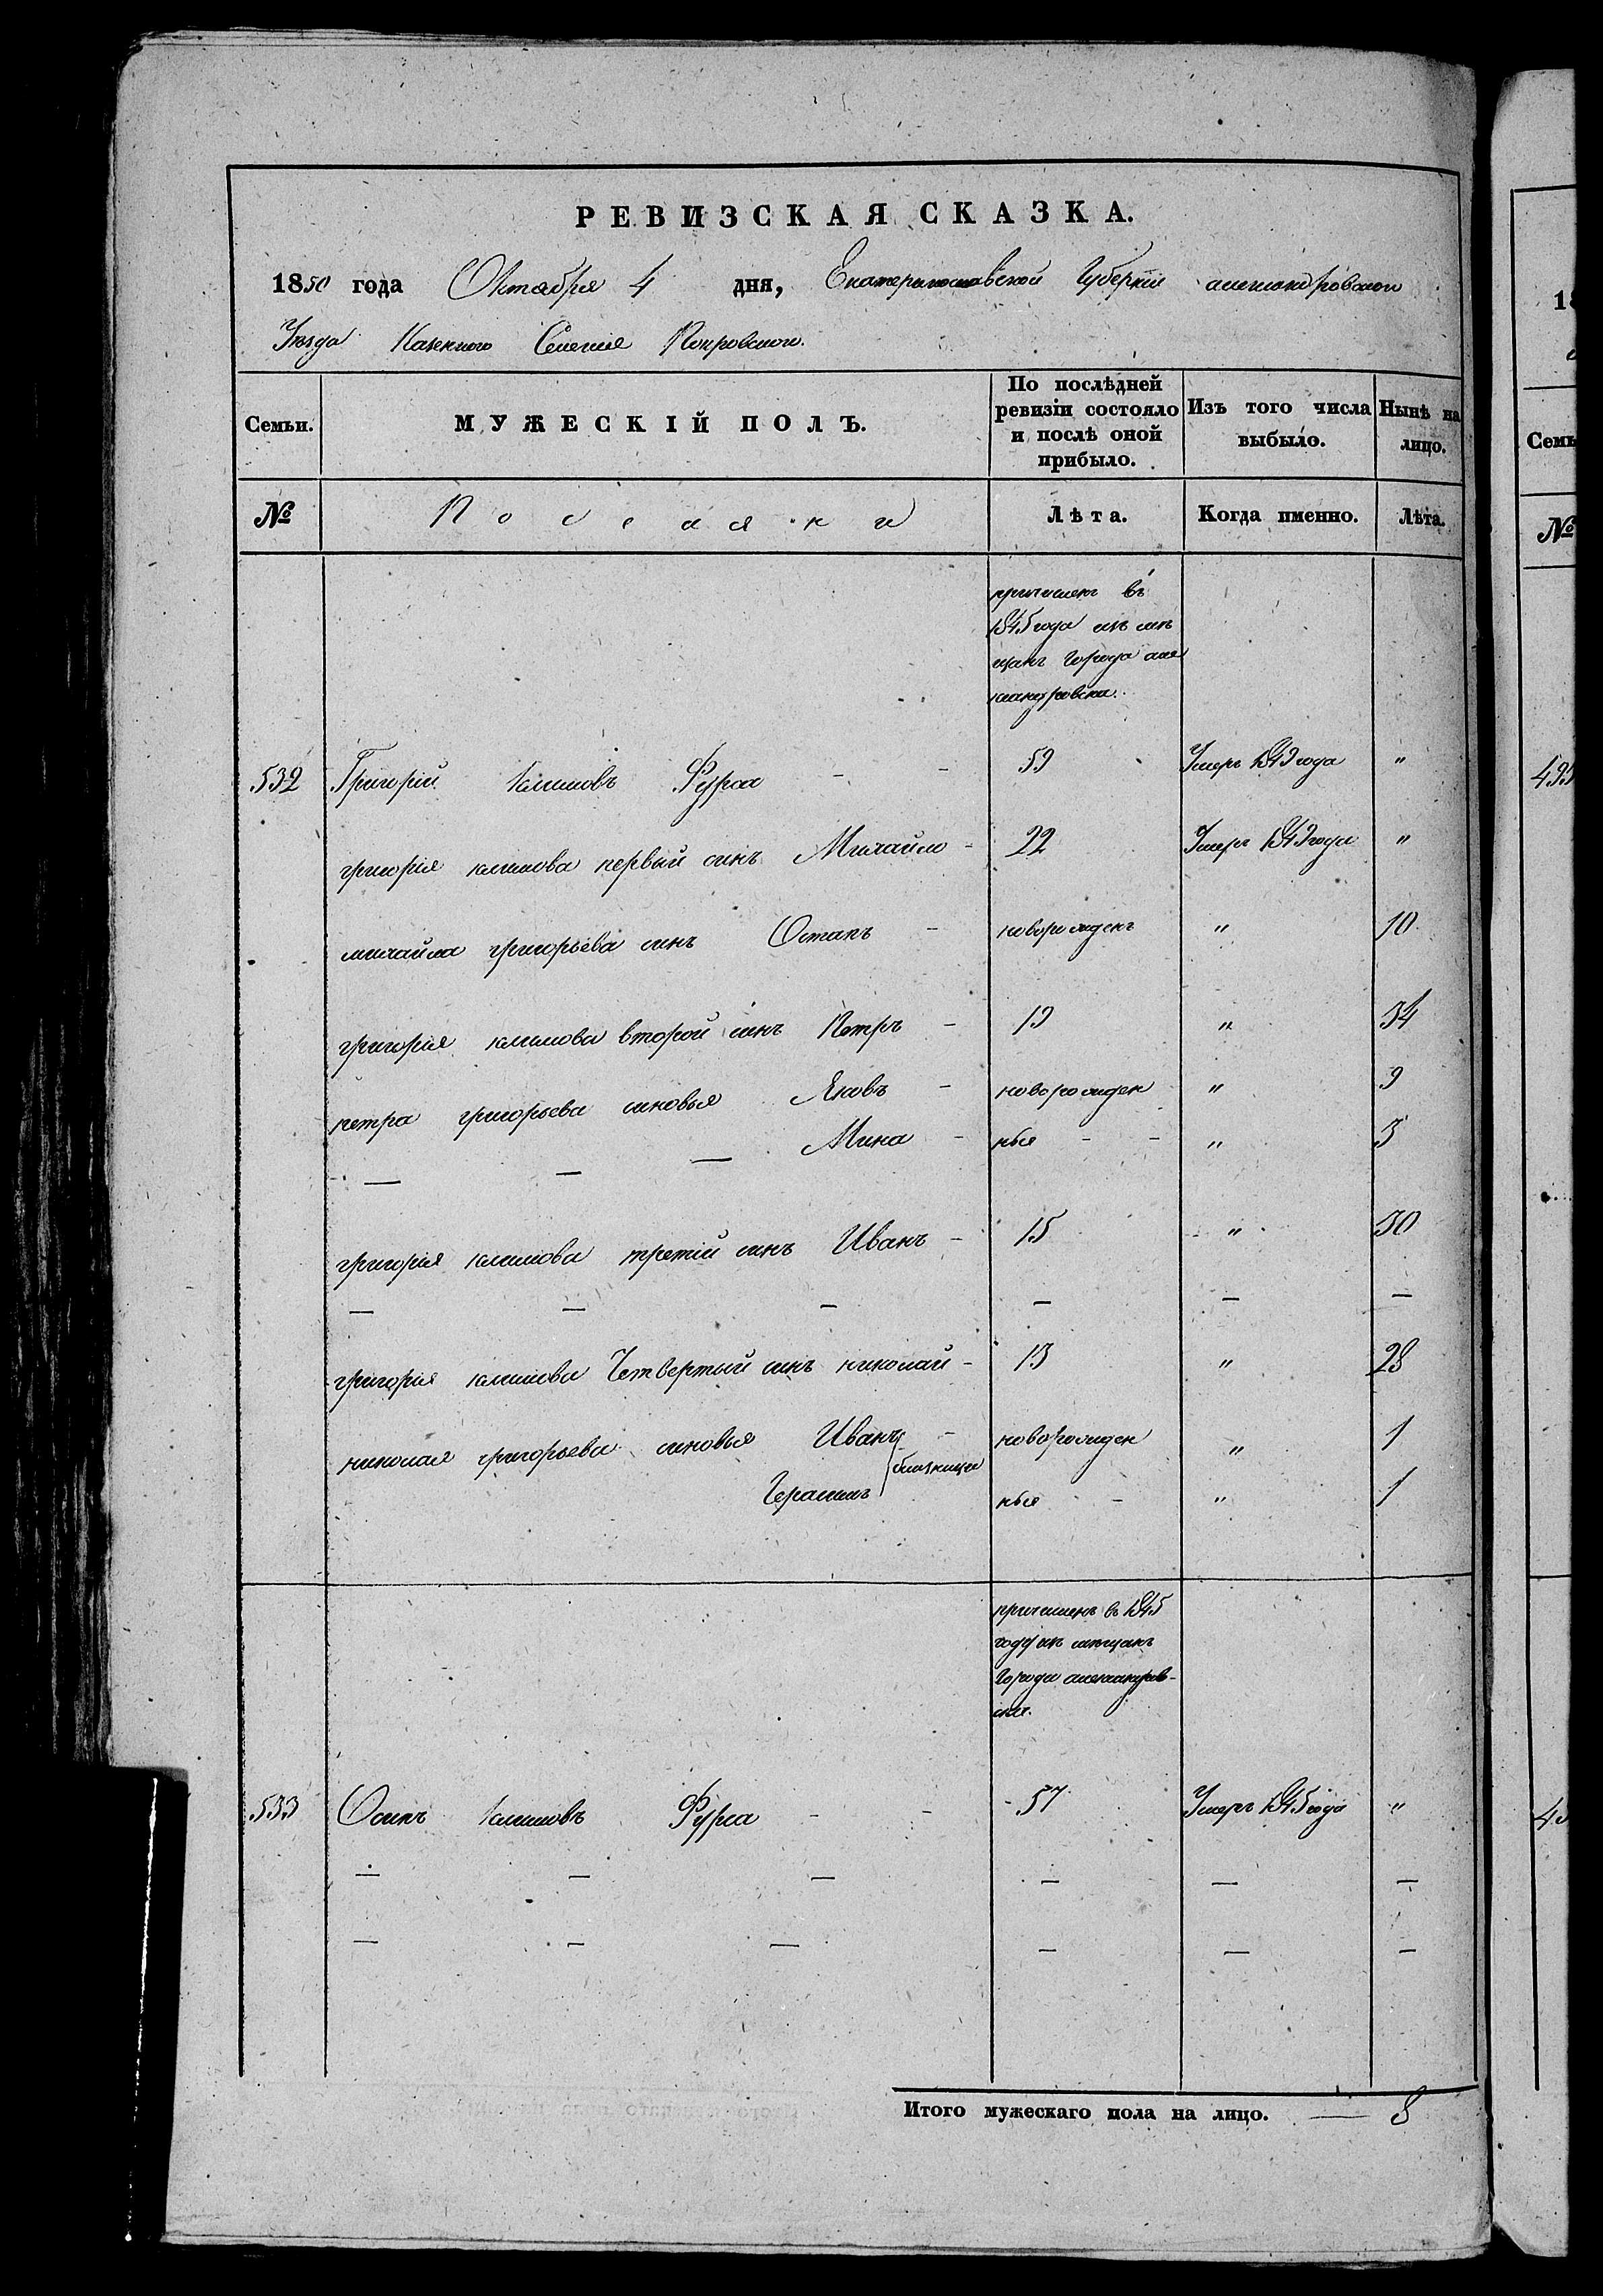 РЕВИЗСКАЯ СКАЗКА.
1850 года Октября 4 дня, Екатеринославской Губерніи александровского
Уезда Казенного Селения Покровского.
Семьи. МУЖЕСКІЙ ПОЛЪ. По послѣдней ревизіи состояло и послѣ оной прибыло. Изъ того числа выбыло. Нынѣ на лицо.
№ Поселяни Лѣта. Когда именно. Лѣта.
причислен въ
1845 года из мѣ
щан города але
ксандровска.
532 Григорій Климовъ Фурса - - 59 Умеръ 1849 года "
григорія климова первый синъ Михайло - 22 Умеръ 1849 года "
михайла григорьева синъ Остапъ - новорожденъ " 10
григорія климова второй синъ Петръ - 19 " 34
петра григорьева синовья Яковъ - новорожден " 9
— — — Мина - ные - - " 3
григорія климова третій синъ Иванъ - 15 " 30
— — — — — —
григорія климова Четвертый синъ николай - 13 " 28
николая григорьева синовья Иванъ - новорожден " 1
близнеци
Герасимъ ные - " 1
причисленъ въ 1845
году из мещанъ
города александров-
ска.
533 Осипъ Климовъ Фурса - - 57 Умеръ 1845 года "
— — — — — —
— — — — — —
Итого мужескаго пола на лицо. — 8
18
Семь
№